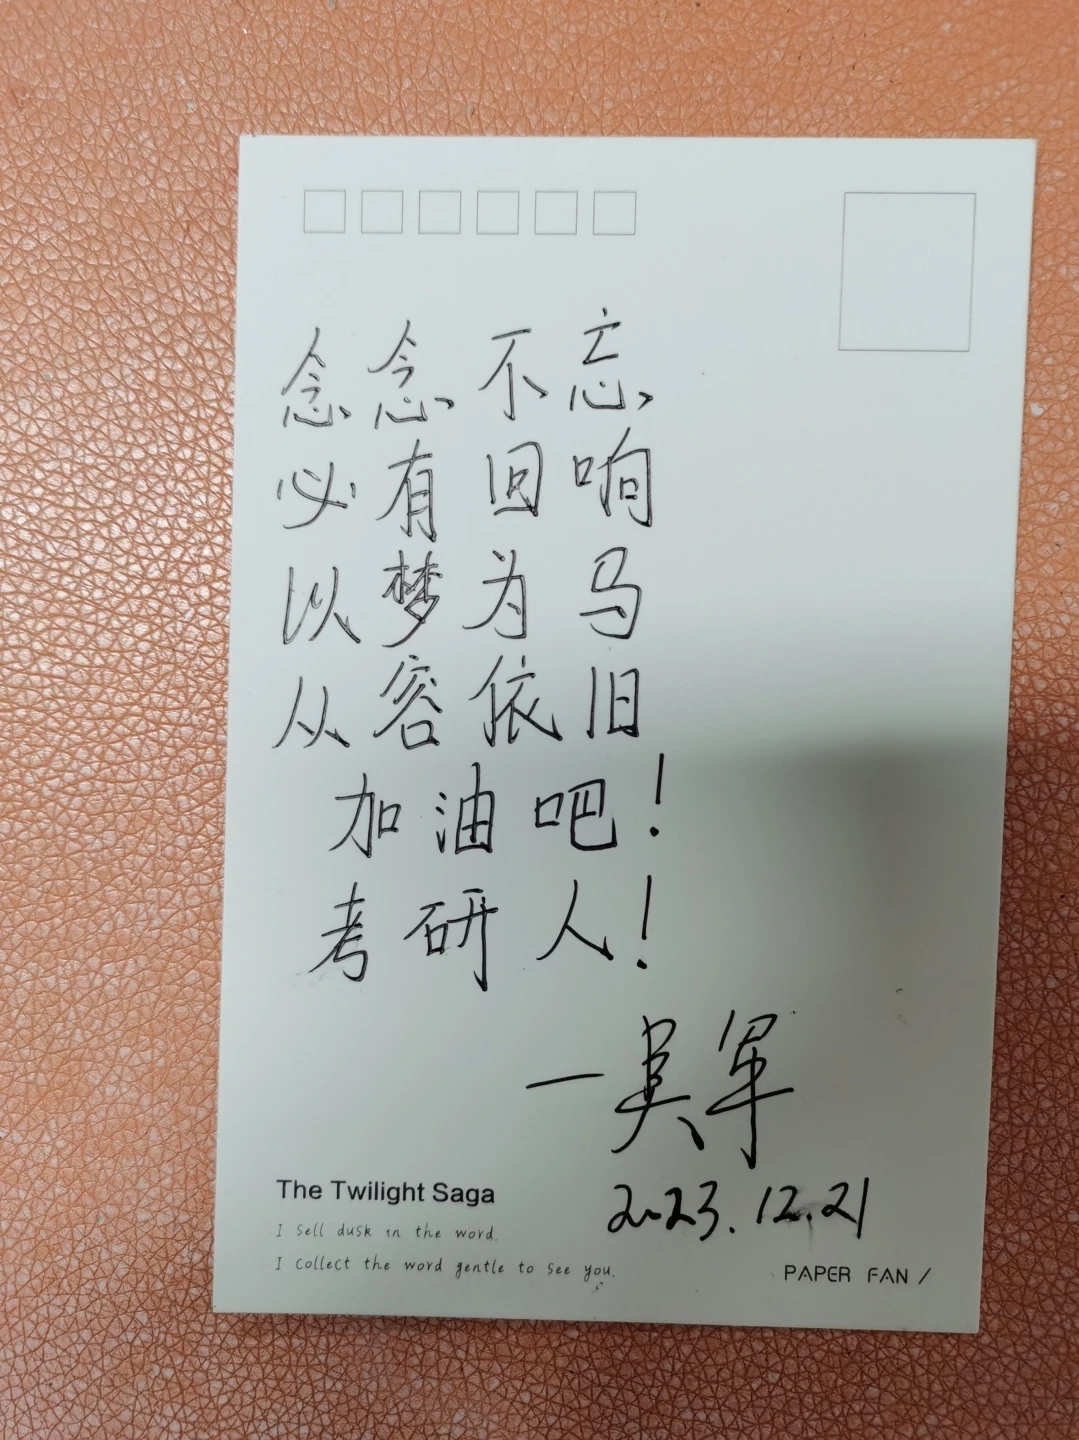 念念不忘
必有回响
以梦为马
从容依旧
加油吧！
考研人！
一吴军
2023.12.21
The Twilight Saga
I sell dusk in the word.
I collect the word gentle to see you.
PAPER FAN /